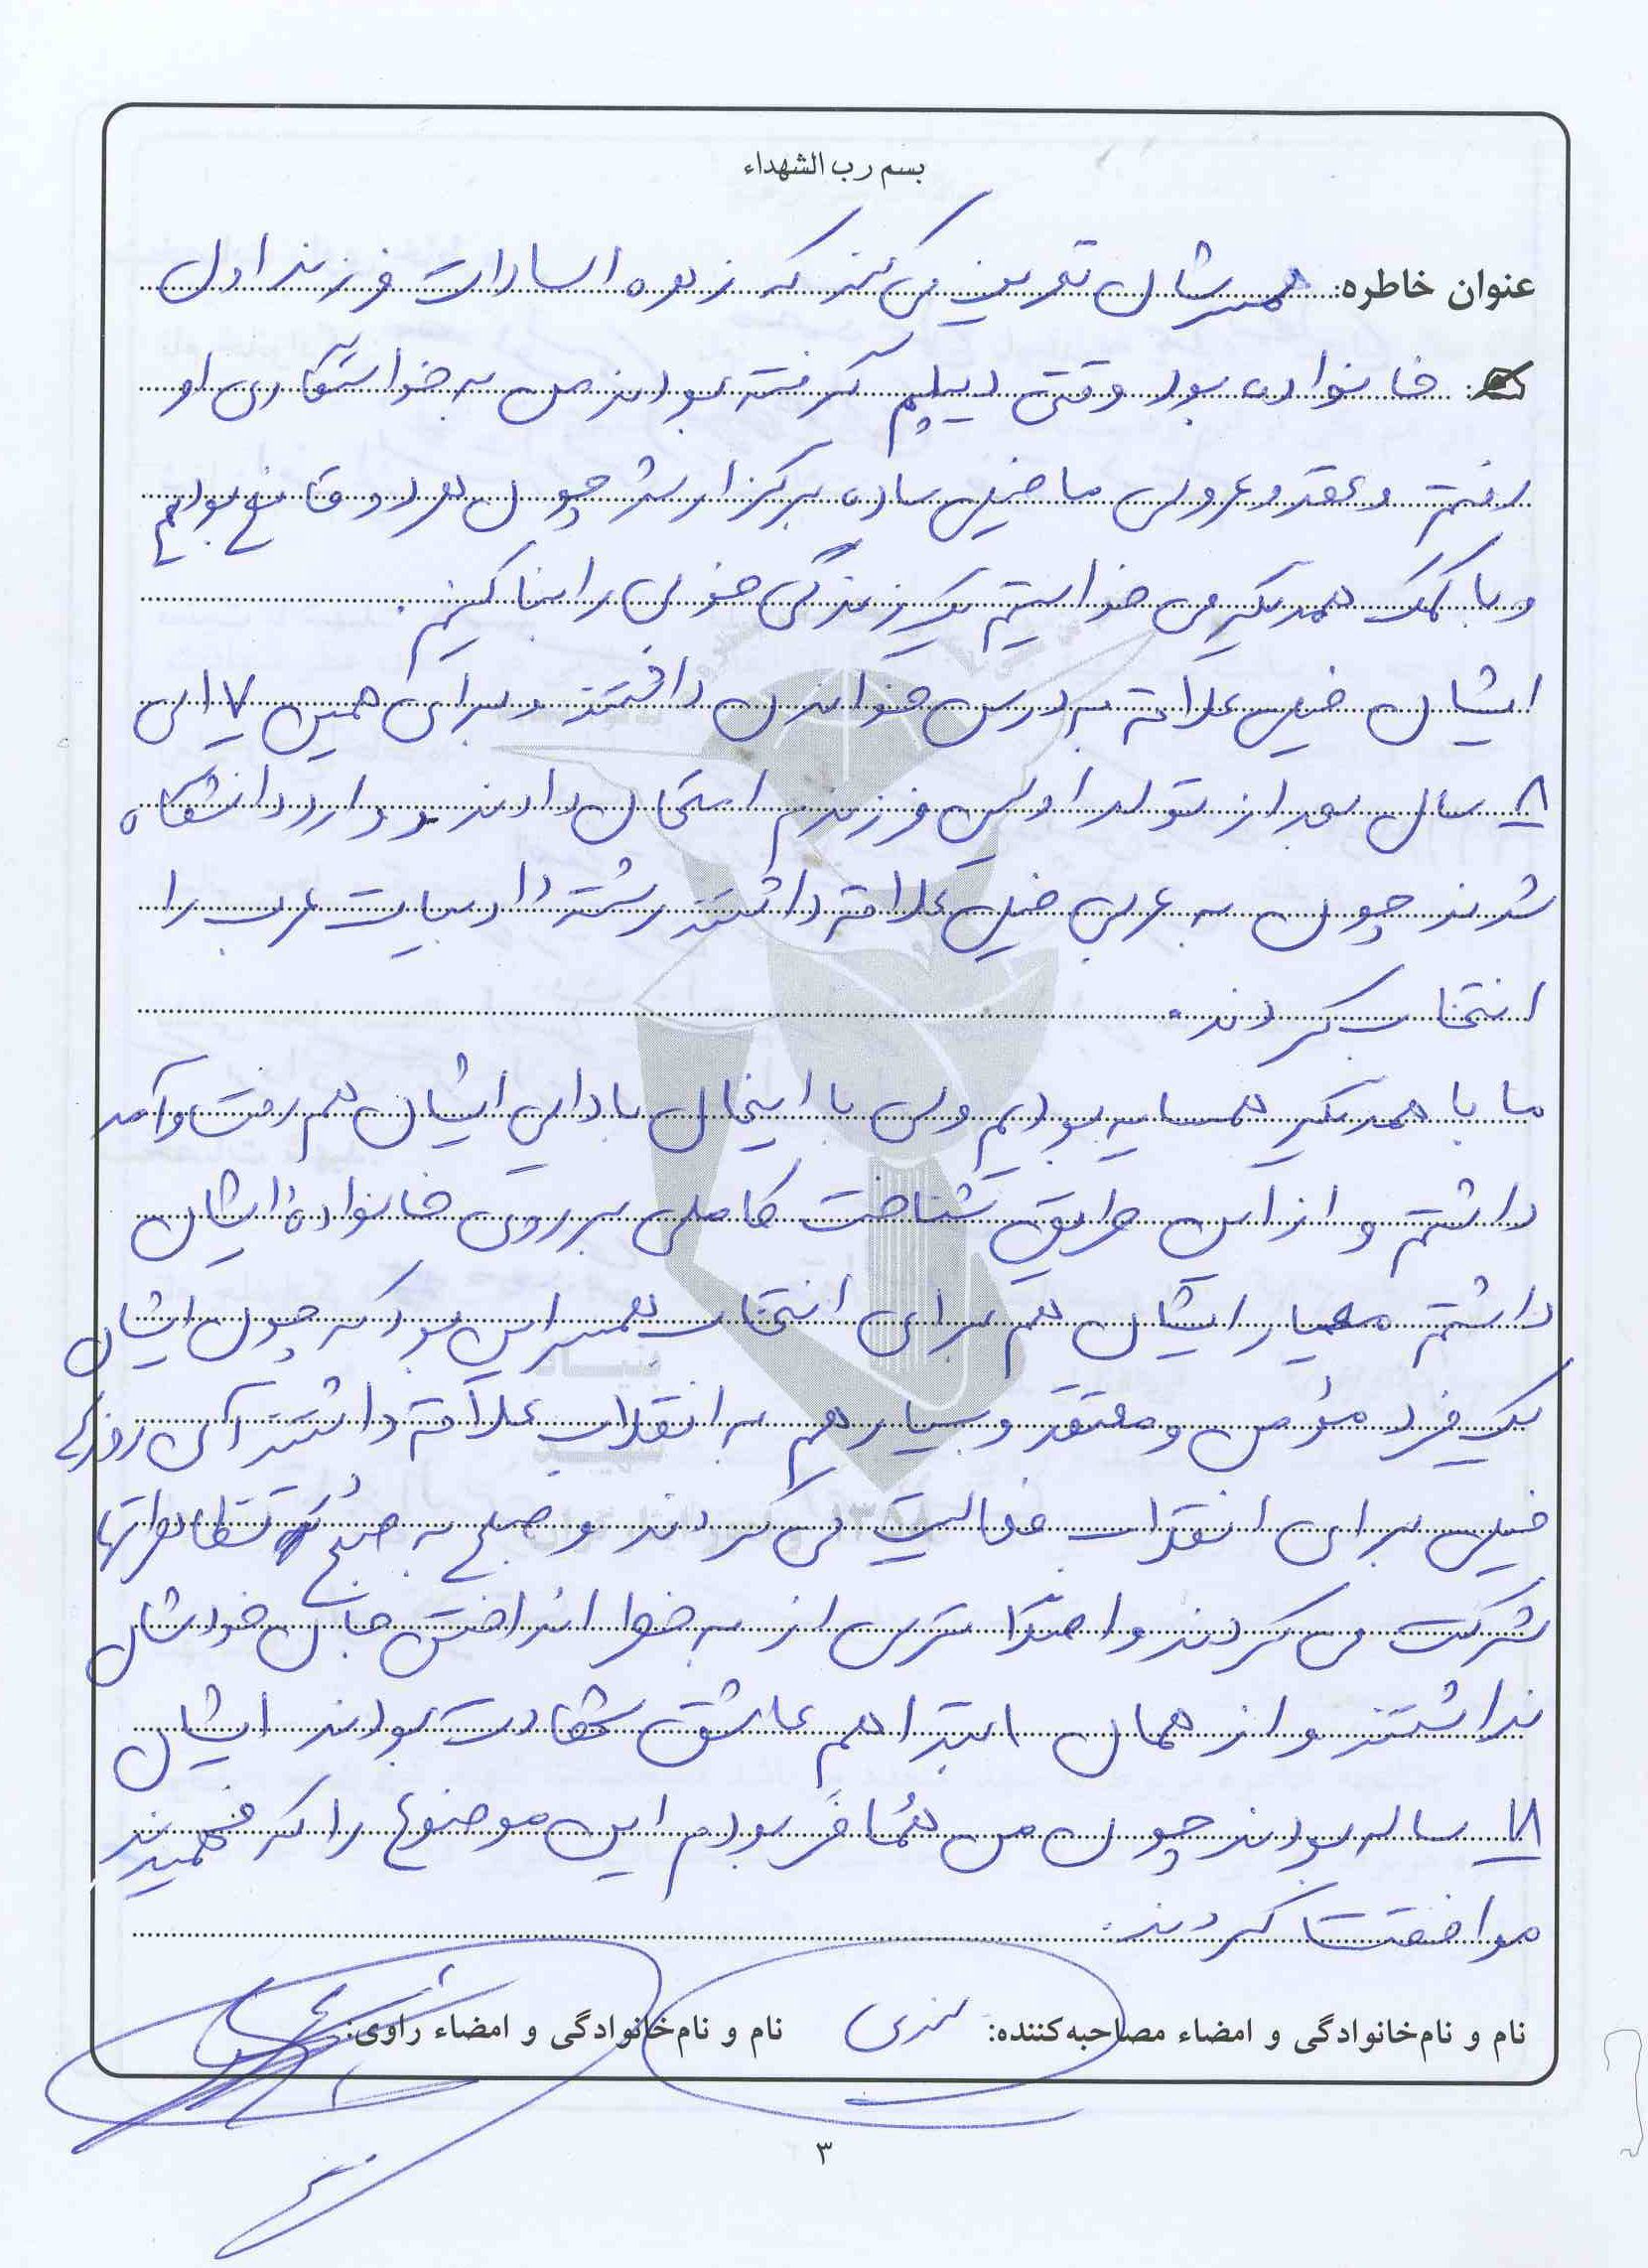 بسم رب الشهداء
عنوان خاطره: همسرشان تعریف می کند که زهره السادات فرزند اول
خانواده بود وقتی دیپلم گرفته بودند من به خواستگاری او
رفتم و عقد و عروسی ما خیلی ساده برگزار شد چون هر دو قانع بودیم
و با کمک همدیگر می خواستیم یک زندگی خوبی را بنا کنیم.
ایشان خیلی علاقه به درس خواندن داشتند و برای همین ۷ الی
۸ سال بعد از تولد اولین فرزندم امتحان دادند و وارد دانشگاه
شدند چون به عربی خیلی علاقه داشتند رشتهٔ ادبیات عرب را
انتخاب کردند.
ما با همدیگر همسایه بودیم ولی با اینحال با دایی ایشان هم رفت و آمد
داشتم و از این طریق شناخت کاملی بر روی خانوادهٔ ایشان
داشتم معیار ایشان هم برای انتخاب همسر این بود که چون ایشان
یک فرد مؤمن و معتقد و بسیار هم به انقلاب علاقه داشتند آن روزها
خیلی برای انقلاب فعالیت می کردند و صبح به صبح تظاهراتها
شرکت می کردند و اصلاً ترسی از به خطر انداختن جان خودشان
نداشتند و از همان ابتدا هم عاشق شهادت بودند ایشان
۱۸ ساله بودند چون من هُمافَر بودم این موضوع را که فهمیدند
موافقت کردند.
نام و نام‌خانوادگی و امضاء مصاحبه‌کننده:
نام و نام‌خانوادگی و امضاء راوی:
۳